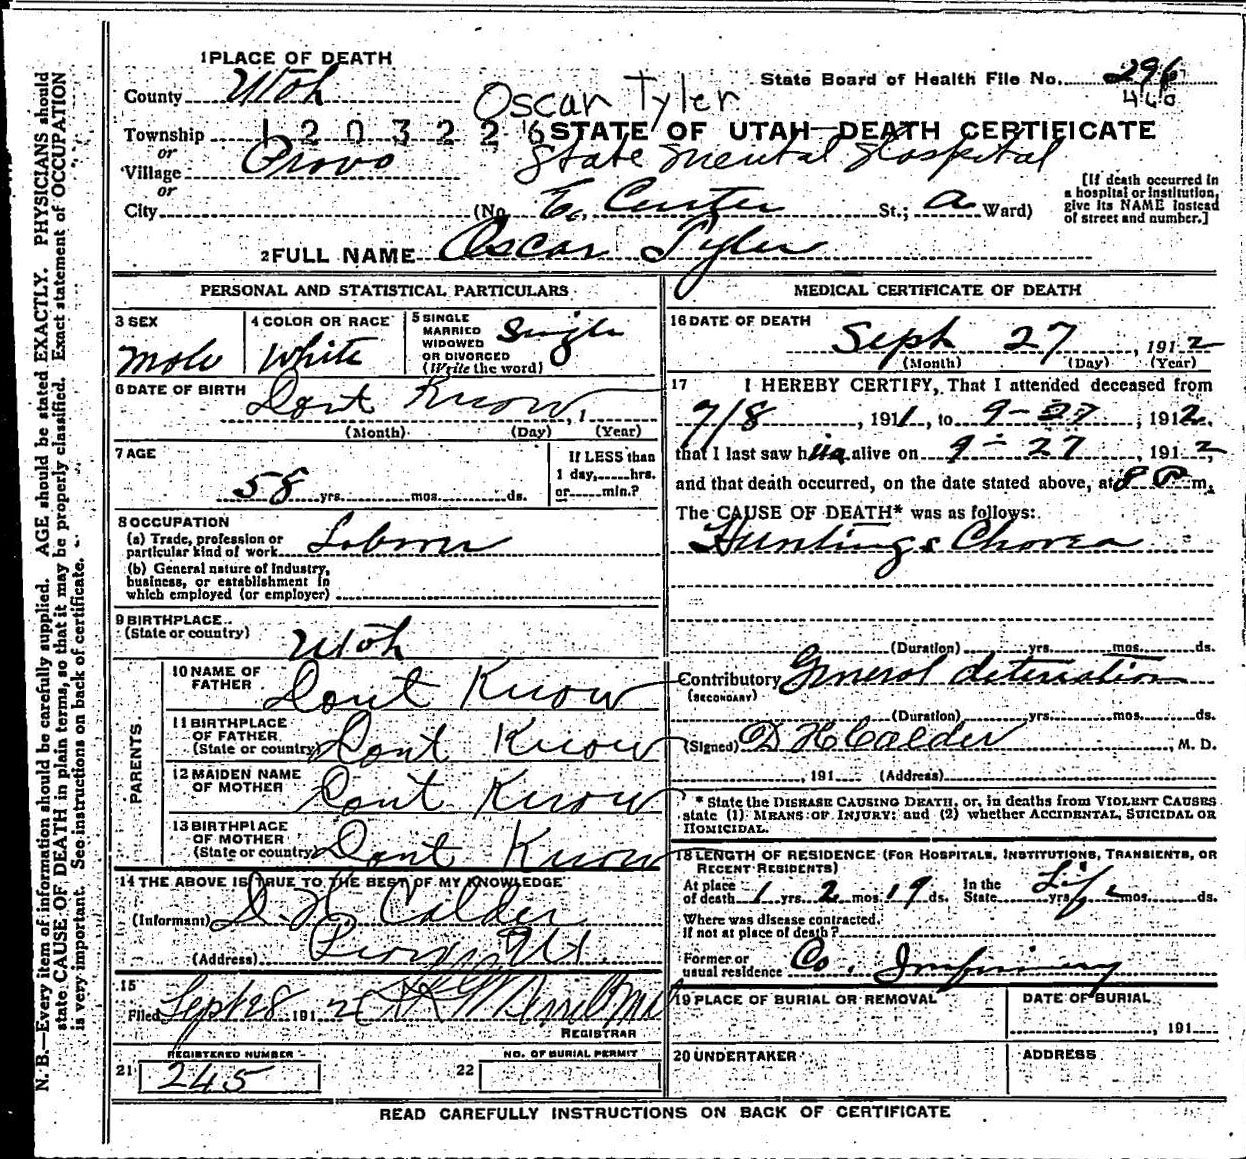 1 PLACE OF DEATH
State Board of Health File No. 296
460
County Utah
Oscar Tyler
Township 120322
or
STATE OF UTAH—DEATH CERTIFICATE
Village Provo
or
State Mental Hospital
City (No. E. Center St.; a Ward)
[If death occurred in
a hospital or institution,
give its NAME instead
of street and number.]
2 FULL NAME Oscar Tyler
PERSONAL AND STATISTICAL PARTICULARS
3 SEX
Male
4 COLOR OR RACE
White
5 SINGLE
MARRIED
WIDOWED
OR DIVORCED
(Write the word)
Single
6 DATE OF BIRTH Dont Know, 1
(Month) (Day) (Year)
7 AGE
58 yrs. mos. ds.
If LESS than
1 day, hrs.
or min.?
8 OCCUPATION
(a) Trade, profession or
particular kind of work Laborer
(b) General nature of industry,
business, or establishment in
which employed (or employer)
9 BIRTHPLACE
(State or country) Utah
PARENTS
10 NAME OF
FATHER Dont Know
11 BIRTHPLACE
OF FATHER
(State or country) Dont Know
12 MAIDEN NAME
OF MOTHER Dont Know
13 BIRTHPLACE
OF MOTHER
(State or country) Dont Know
14 THE ABOVE IS TRUE TO THE BEST OF MY KNOWLEDGE
(Informant) D. H. Calder
(Address) Provo, Ut.
15
Filed Sept 28 191 2
REGISTRAR
REGISTERED NUMBER
21 245
NO. OF BURIAL PERMIT
22
MEDICAL CERTIFICATE OF DEATH
16 DATE OF DEATH
Sept 27, 1912
(Month) (Day) (Year)
17 I HEREBY CERTIFY, That I attended deceased from
7/8, 1911, to 9-27, 1912.
that I last saw him alive on 9-27, 1912,
and that death occurred, on the date stated above, at 8 P m.
The CAUSE OF DEATH* was as follows:
Huntings Chorea
(Duration) yrs. mos. ds.
Contributory General
(SECONDARY)
(Duration) yrs. mos. ds.
(Signed) D H Calder, M. D.
, 191 (Address)
* State the DISEASE CAUSING DEATH, or, in deaths from VIOLENT CAUSES
state (1) MEANS OF INJURY: and (2) whether ACCIDENTAL, SUICIDAL OR
HOMICIDAL.
18 LENGTH OF RESIDENCE (FOR HOSPITALS, INSTITUTIONS, TRANSIENTS, OR
RECENT RESIDENTS)
At place
of death 1 yrs. 2 mos. 19 ds.
In the
State Life yrs. mos. ds.
Where was disease contracted,
if not at place of death?
Former or
usual residence Co. Infirmary
19 PLACE OF BURIAL OR REMOVAL
DATE OF BURIAL
, 191
20 UNDERTAKER
ADDRESS
READ CAREFULLY INSTRUCTIONS ON BACK OF CERTIFICATE
N. B.—Every item of information should be carefully supplied. AGE should be stated EXACTLY. PHYSICIANS should
state CAUSE OF DEATH in plain terms, so that it may be properly classified. Exact statement of OCCUPATION
is very important. See instructions on back of certificate.